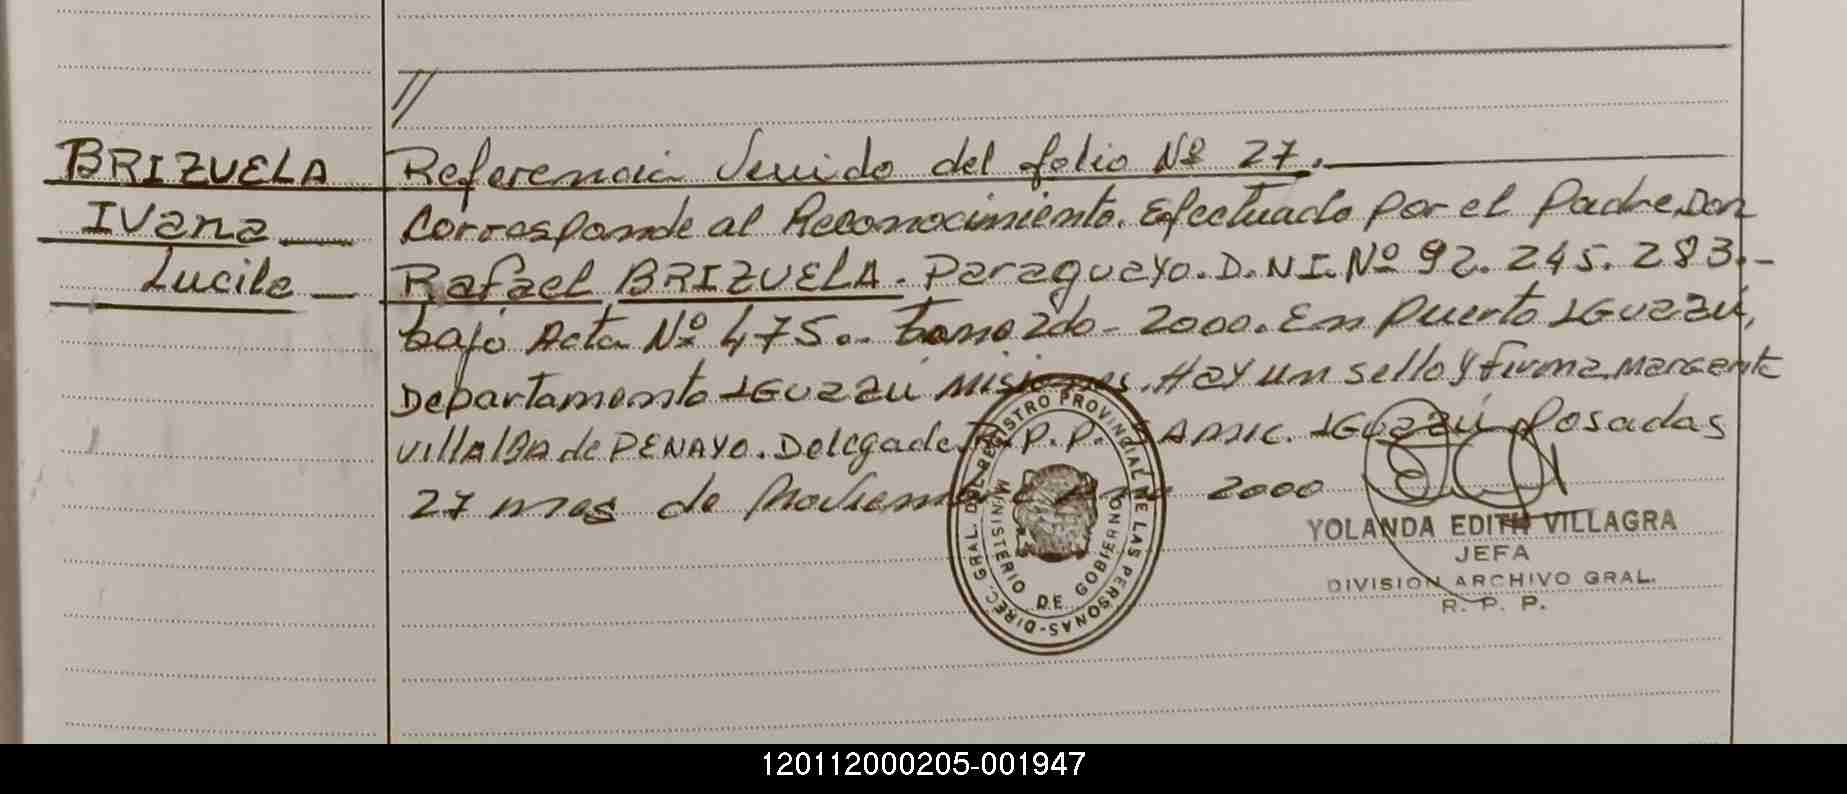 //
BRIZUELA
Ivana
Lucila
Referencia Venido del folio Nº 27.
Corresponde al Reconocimiento. Efectuado por el Padre Don
Rafael BRIZUELA. Paraguayo. D.N.I. Nº 92.245.283.-
bajo Acta Nº 475.- tomo 2do - 2000. En Puerto IGuazú,
Departamento IGuazú Misiones. Hay un sello y firma. Margarita
Villalba de PENAYO. Delegada R.P.P. IGuazú Posadas
27 mes de Noviembre Año 2000
DIREC. GRAL. DEL REGISTRO PROVINCIAL DE LAS PERSONAS-
MINISTERIO DE GOBIERNO
YOLANDA EDITH VILLAGRA
JEFA
DIVISION ARCHIVO GRAL.
R. P. P.
120112000205-001947